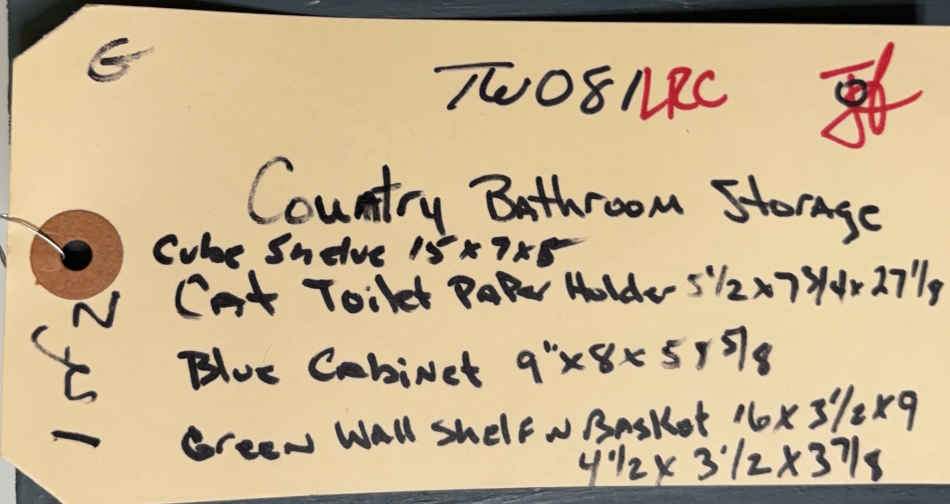 G
TW081LRC
Country Bathroom Storage
Cube Shelve 15 x 7 x 5
Cat Toilet Paper Holder 5 1/2 x 7 3/4 x 27 1/8
Blue Cabinet 9" x 8 x 5 5/8
Green Wall Shelf N Basket 16 x 3 1/2 x 9
4 1/2 x 3 1/2 x 3 7/8